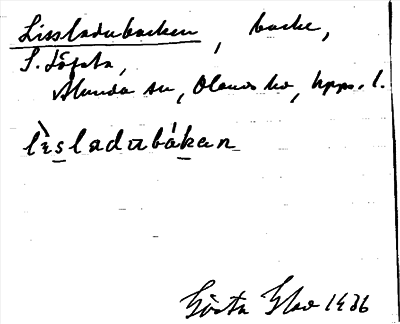 Lissladubacken, backe,
S. Löfsta,
Alunda sn, Olands hd, Upps. l.
lìsladubákan
Gösta 1936